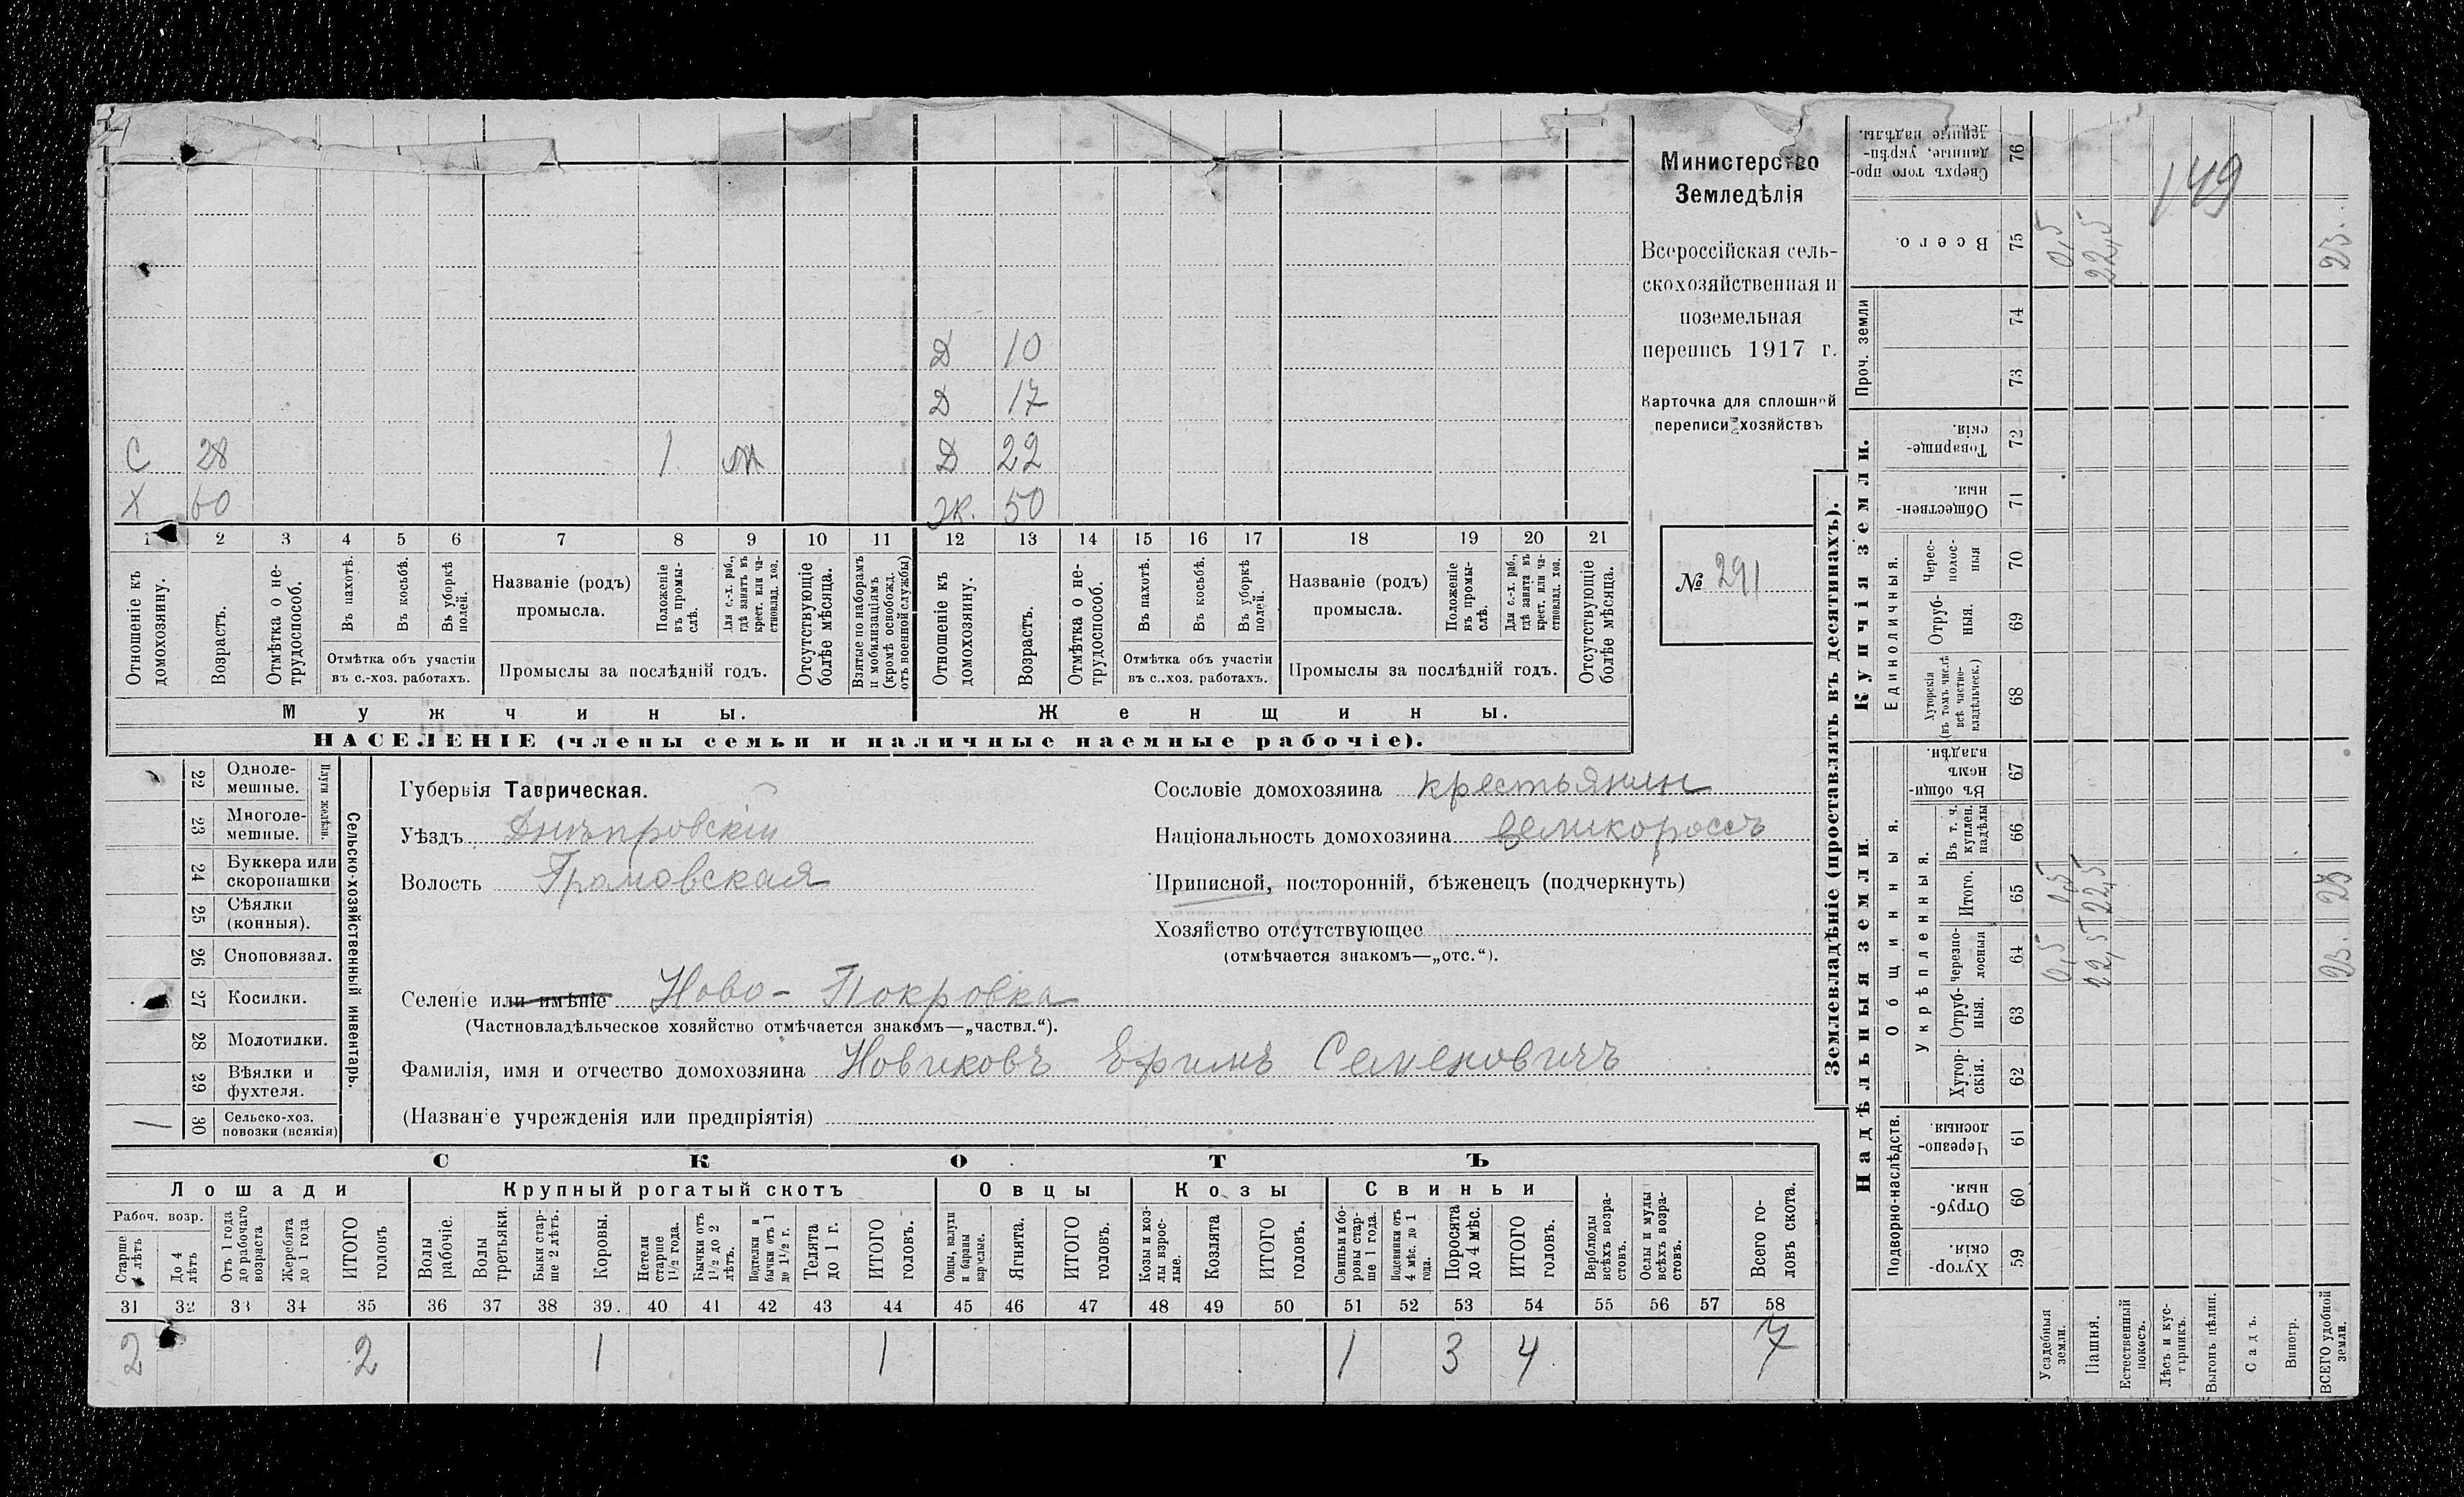 Министерство
Земледѣлія
Всероссійская сель-
скохозяйственная и
поземельная
перепись 1917 г.
Карточка для сплошной
переписи хозяйствъ
№ 291
Д 10
Д 17
С 28 1 Д 22
Х 60 ж. 50
1 2 3 4 5 6 7 8 9 10 11 12 13 14 15 16 17 18 19 20 21
Отношеніе къ домохозяину.
Возрастъ.
Отмѣтка о не-трудоспособ.
Въ пахотѣ.
Въ косьбѣ.
Въ уборкѣ полей.
Отмѣтка объ участіи
въ с.-хоз. работахъ.
Названіе (родъ)
промысла.
Положеніе въ промы-слѣ.
Для с.-х. раб., гдѣ занятъ въ крест. или ча-стновлад. хоз.
Промыслы за послѣдній годъ.
Отсутствующіе болѣе мѣсяца.
Взятые по наборамъ и мобилизаціямъ (кромѣ освобожд. отъ военной службы)
Отношеніе къ домохозяину.
Возрастъ.
Отмѣтка о не-трудоспособ.
Въ пахотѣ.
Въ косьбѣ.
Въ уборкѣ полей.
Отмѣтка объ участіи
въ с..хоз. работахъ.
Названіе (родъ)
промысла.
Положеніе въ промы-слѣ.
Для с.-х. раб., гдѣ занята въ крест. или ча-стновлад. хоз.
Промыслы за послѣдній годъ.
Отсутствующіе болѣе мѣсяца.
Мужчины.
Женщины.
НАСЕЛЕНІЕ (члены семьи и наличные наемные рабочіе).
Сельско-хозяйственный инвентарь.
Плуги желѣзн.
22 Одноле-мешные.
23 Многоле-мешные.
24 Буккера или скоропашки
25 Сѣялки (конныя).
26 Сноповязал.
27 Косилки.
28 Молотилки.
29 Вѣялки и фухтеля.
1 30 Сельско-хоз. повозки (всякія)
Губернія Таврическая.
Уѣздъ Днѣпровскій
Волость Громовская
Сословіе домохозяина крестьянин
Національность домохозяина великороссъ
Приписной, посторонній, бѣженецъ (подчеркнуть)
Хозяйство отсутствующее
(отмѣчается знакомъ—„отс.“).
Селеніе или имѣніе Ново-Покровка
(Частновладѣльческое хозяйство отмѣчается знакомъ—„частвл.“).
Фамилія, имя и отчество домохозяина Новиковъ Ефимъ Семеновичъ
(Названіе учрежденія или предпріятія)
СКОТЪ
Лошади
Крупный рогатый скотъ
Овцы
Козы
Свиньи
Рабоч. возр.
Старше 4 лѣтъ
До 4 лѣтъ
Отъ 1 года до рабочаго возраста
Жеребята до 1 года
ИТОГО головъ
Волы рабочіе.
Волы третьяки.
Быки стар-ше 2 лѣтъ.
Коровы.
Нетели старше 1½ года.
Бычки отъ 1½ до 2 лѣтъ.
Подтелки и бычки отъ 1 до 1½ г.
Телята до 1 г.
ИТОГО головъ.
Овцы, валухи и бараны взрослые.
Ягнята.
ИТОГО головъ.
Козы и коз-лы взрос-лые.
Козлята
ИТОГО головъ.
Свиньи и бо-ровы стар-ше 1 года.
Подсвинки отъ 4 мѣс. до 1 года.
Поросята до 4 мѣс.
ИТОГО головъ.
Верблюды всѣхъ возра-стовъ.
Ослы и мулы всѣхъ возра-стовъ.
Всего го-ловъ скота.
31 32 33 34 35 36 37 38 39. 40 41 42 43 44 45 46 47 48 49 50 51 52 53 54 55 56 57 58
2 2 1 1 1 3 4 7
Землевладѣніе (проставлять въ десятинахъ).
Надѣльныя земли.
Купчія земли.
Проч. земли
Подворно-наслѣдств.
Общинныя.
Укрѣпленныя.
Единоличныя.
Хутор-скія. 59
Отруб-ныя. 60
Черезпо-лосныя. 61
Хутор-скія. 62
Отруб-ныя. 63
Черезпо-лосныя 64
Итого. 65
Въ т. ч. куплен. надѣлы 66
Въ общин-номъ владѣн. 67
Хуторскія (въ томъ числѣ всѣ частно-владѣльческ.) 68
Отруб-ныя. 69
Черес-полос-ныя 70
Обществен-ныя. 71
Товарище-скія. 72
73
74
Всего. 75
Сверхъ того про-данные, укрѣп-ленные надѣлы. 76
Усадебныя земли. 0,5 0,5 0,5
Пашня. 22,5 22,5 22,5
Естественный покосъ.
Лѣсъ и кус-тарникъ.
Выгонъ цѣлин.
Садъ.
Виногр.
ВСЕГО удобной земли. 23. 23 23.
149